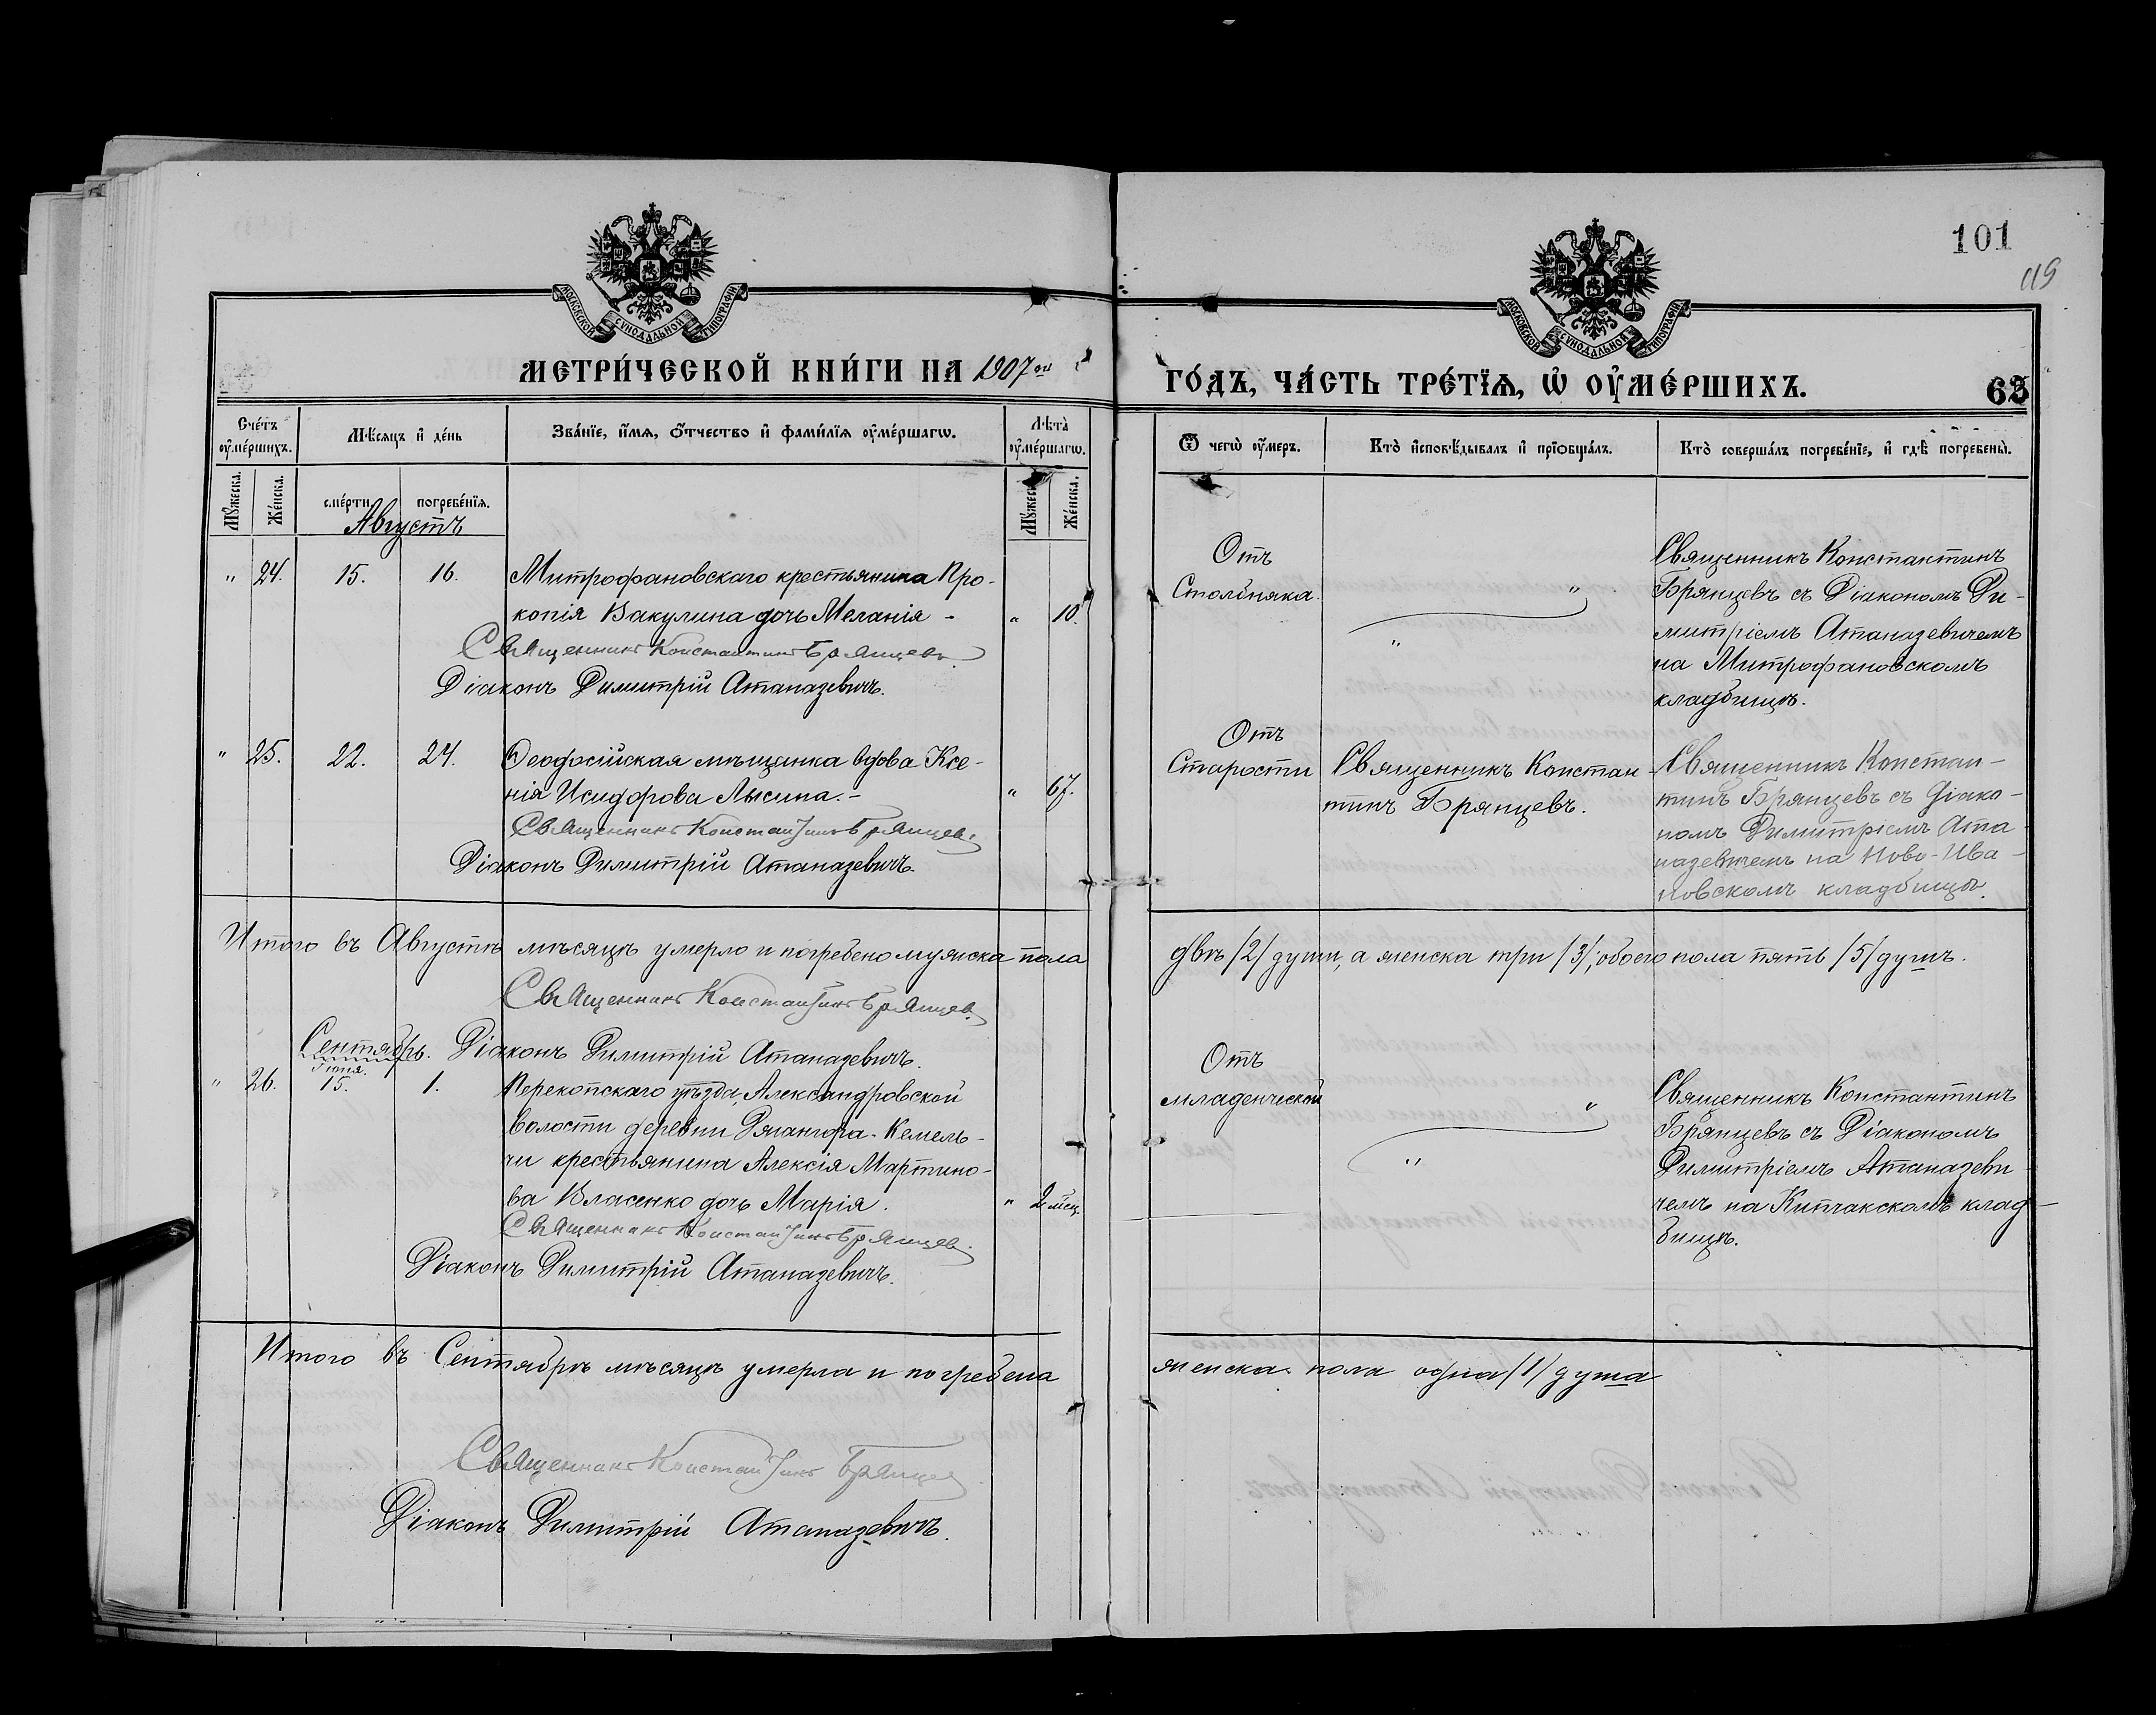 101
119
МОСКОВСКОЙ СѴНОДАЛЬНОЙ ТИПОГРАФІИ
МОСКОВСКОЙ СѴНОДАЛЬНОЙ ТИПОГРАФІИ
МЕТРИ́ЧЕСКОЙ КНИ́ГИ НА 1907 ой
ГО́ДЪ, ЧА́СТЬ ТРЕ́ТЇѦ, Ѡ҆ ОУ҆МЕ́РШИХЪ.
63
Сче́тъ оу҆ме́ршихъ.
Мѣ́сяцъ и҆ де́нь
Зва́нїе, и҆́мѧ, ѻ҆́тчество и҆ фами́лїѧ оу҆ме́ршагѡ.
Лѣта̀ оу҆ме́ршагѡ.
Ѿ чегѡ̀ оу҆́меръ.
Кто̀ и҆сповѣ́дывалъ и҆ прїѡбща́лъ.
Кто̀ соверша́лъ погребе́нїе, и҆ гдѣ̀ погребены̀.
Му́жеска.
Же́нска.
сме́рти
погребе́нїѧ.
Му́жеска.
Же́нска.
Августъ
" 24. 15. 16. Митрофановскаго крестьянина Про-
копія Вакулина дочь Меланія - " 10.
Священникъ Константинъ Брянцевъ.
Діаконъ Димитрій Атаназевичъ.
Отъ
Столбняка.
"
"
Священникъ Константинъ
Брянцевъ съ Діакономъ Ди-
митріемъ Атаназевичемъ
на Митрофановскомъ
кладбищѣ.
" 25. 22. 24. Ѳеодосійская мѣщанка вдова Ксе-
нія Исидорова Лысина. - " 67.
Священникъ Константинъ Брянцевъ.
Діаконъ Димитрій Атаназевичъ.
Отъ
Старости
Священникъ Констан-
тинъ Брянцевъ.
Священникъ Констан-
тинъ Брянцевъ съ Діако-
номъ Димитріемъ Ата
назевичемъ на Ново-Ива-
новскомъ кладбищѣ.
Итого въ Августѣ мѣсяцѣ умерло и погребено мужска пола
двѣ /2/ души, а женска три /3/, обоего пола пять /5/ душъ.
Священникъ Константинъ Брянцевъ.
Сентябрь. Діаконъ Димитрій Атаназевичъ.
Іюня.
" 26. 15. 1. Перекопскаго уѣзда, Александровской
волости деревни Джангора-Кемель-
чи крестьянина Алексія Мартино-
ва Власенко дочь Марія. " 2 мѣс.
Священникъ Константинъ Брянцевъ.
Діаконъ Димитрій Атаназевичъ.
Отъ
младенческой
"
"
Священникъ Константинъ
Брянцевъ съ Діакономъ
Димитріемъ Атаназеви
чемъ на Кипчакскомъ клад-
бищѣ.
Итого въ Сентябрѣ мѣсяцѣ умерла и погребена
женска пола одна /1/ душа
Священникъ Константинъ Брянцевъ
Діаконъ Димитрій Атаназевичъ.